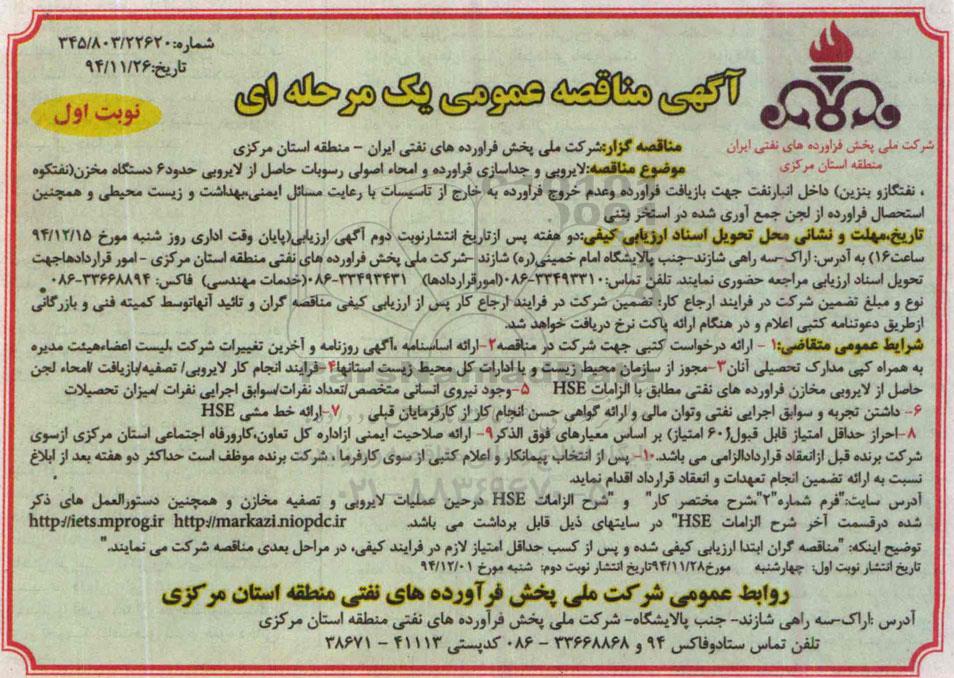 شماره:۳۴۵/۸۰۳/۲۲۶۲۰
تاریخ:۹۴/۱۱/۲۶
آگهی مناقصه عمومی یک مرحله ای
نوبت اول
شرکت ملی پخش فرآورده های نفتی ایران
منطقه استان مرکزی
مناقصه گزار:شرکت ملی پخش فراورده های نفتی ایران – منطقه استان مرکزی
موضوع مناقصه:لایروبی و جداسازی فراورده و امحاء اصولی رسوبات حاصل از لایروبی حدود۶ دستگاه مخزن(نفتکوه
، نفتگازو بنزین) داخل انبارنفت جهت بازیافت فراورده وعدم خروج فراورده به خارج از تاسیسات با رعایت مسائل ایمنی،بهداشت و زیست محیطی و همچنین
استحصال فراورده از لجن جمع آوری شده در استخر بتنی
تاریخ،مهلت و نشانی محل تحویل اسناد ارزیابی کیفی:دو هفته پس ازتاریخ انتشارنوبت دوم آگهی ارزیابی(پایان وقت اداری روز شنبه مورخ ۹۴/۱۲/۱۵
ساعت۱۶) به آدرس: اراک-سه راهی شازند-جنب پالایشگاه امام خمینی(ره) شازند -شرکت ملی پخش فراورده های نفتی منطقه استان مرکزی - امور قراردادهاجهت
تحویل اسناد ارزیابی مراجعه حضوری نمایند. تلفن تماس:۳۳۴۹۳۳۱۰-۰۸۶(امورقراردادها) ۳۳۴۹۳۴۳۱-۰۸۶(خدمات مهندسی) فاکس: ۳۳۶۶۸۸۹۴-۰۸۶
نوع و مبلغ تضمین شرکت در فرایند ارجاع کار: تضمین شرکت در فرایند ارجاع کار پس از ارزیابی کیفی مناقصه گران و تائید آنهاتوسط کمیته فنی و بازرگانی
ازطریق دعوتنامه کتبی اعلام و در هنگام ارائه پاکت نرخ دریافت خواهد شد.
شرایط عمومی متقاضی:۱ - ارائه درخواست کتبی جهت شرکت در مناقصه۲-ارائه اساسنامه ،آگهی روزنامه و آخرین تغییرات شرکت ،لیست اعضاءهیئت مدیره
به همراه کپی مدارک تحصیلی آنان۳-مجوز از سازمان محیط زیست و یا ادارات کل محیط زیست استانها۴-فرایند انجام کار لایروبی/ تصفیه/بازیافت /امحاء لجن
حاصل از لایروبی مخازن فراورده های نفتی مطابق با الزامات HSE ۵-وجود نیروی انسانی متخصص/تعداد نفرات/سوابق اجرایی نفرات /میزان تحصیلات
۶- داشتن تجربه و سوابق اجرایی نفتی وتوان مالی و ارائه گواهی حسن انجام کار از کارفرمایان قبلی ۷-ارائه خط مشی HSE
۸-احراز حداقل امتیاز قابل قبول(۶۰ امتیاز) بر اساس معیارهای فوق الذکر۹- ارائه صلاحیت ایمنی ازاداره کل تعاون،کارورفاه اجتماعی استان مرکزی ازسوی
شرکت برنده قبل ازانعقاد قراردادالزامی می باشد.۱۰- پس از انتخاب پیمانکار و اعلام کتبی از سوی کارفرما ، شرکت برنده موظف است حداکثر دو هفته بعد از ابلاغ
نسبت به ارائه تضمین انجام تعهدات و انعقاد قرارداد اقدام نماید.
آدرس سایت:"فرم شماره"۲"،شرح مختصر کار" و "شرح الزامات HSE درحین عملیات لایروبی و تصفیه مخازن و همچنین دستورالعمل های ذکر
شده درقسمت آخر شرح الزامات HSE" در سایتهای ذیل قابل برداشت می باشد. http://iets.mprog.ir http://markazi.niopdc.ir
توضیح اینکه: "مناقصه گران ابتدا ارزیابی کیفی شده و پس از کسب حداقل امتیاز لازم در فرایند کیفی، در مراحل بعدی مناقصه شرکت می نمایند."
تاریخ انتشار نوبت اول: چهارشنبه مورخ۹۴/۱۱/۲۸تاریخ انتشار نوبت دوم: شنبه مورخ ۹۴/۱۲/۰۱
روابط عمومی شرکت ملی پخش فرآورده های نفتی منطقه استان مرکزی
آدرس :اراک-سه راهی شازند- جنب پالایشگاه- شرکت ملی پخش فرآورده های نفتی منطقه استان مرکزی
تلفن تماس ستادوفاکس ۹۴ و ۳۳۶۶۸۸۶۸ - ۰۸۶ کدپستی ۴۱۱۱۳ - ۳۸۶۷۱